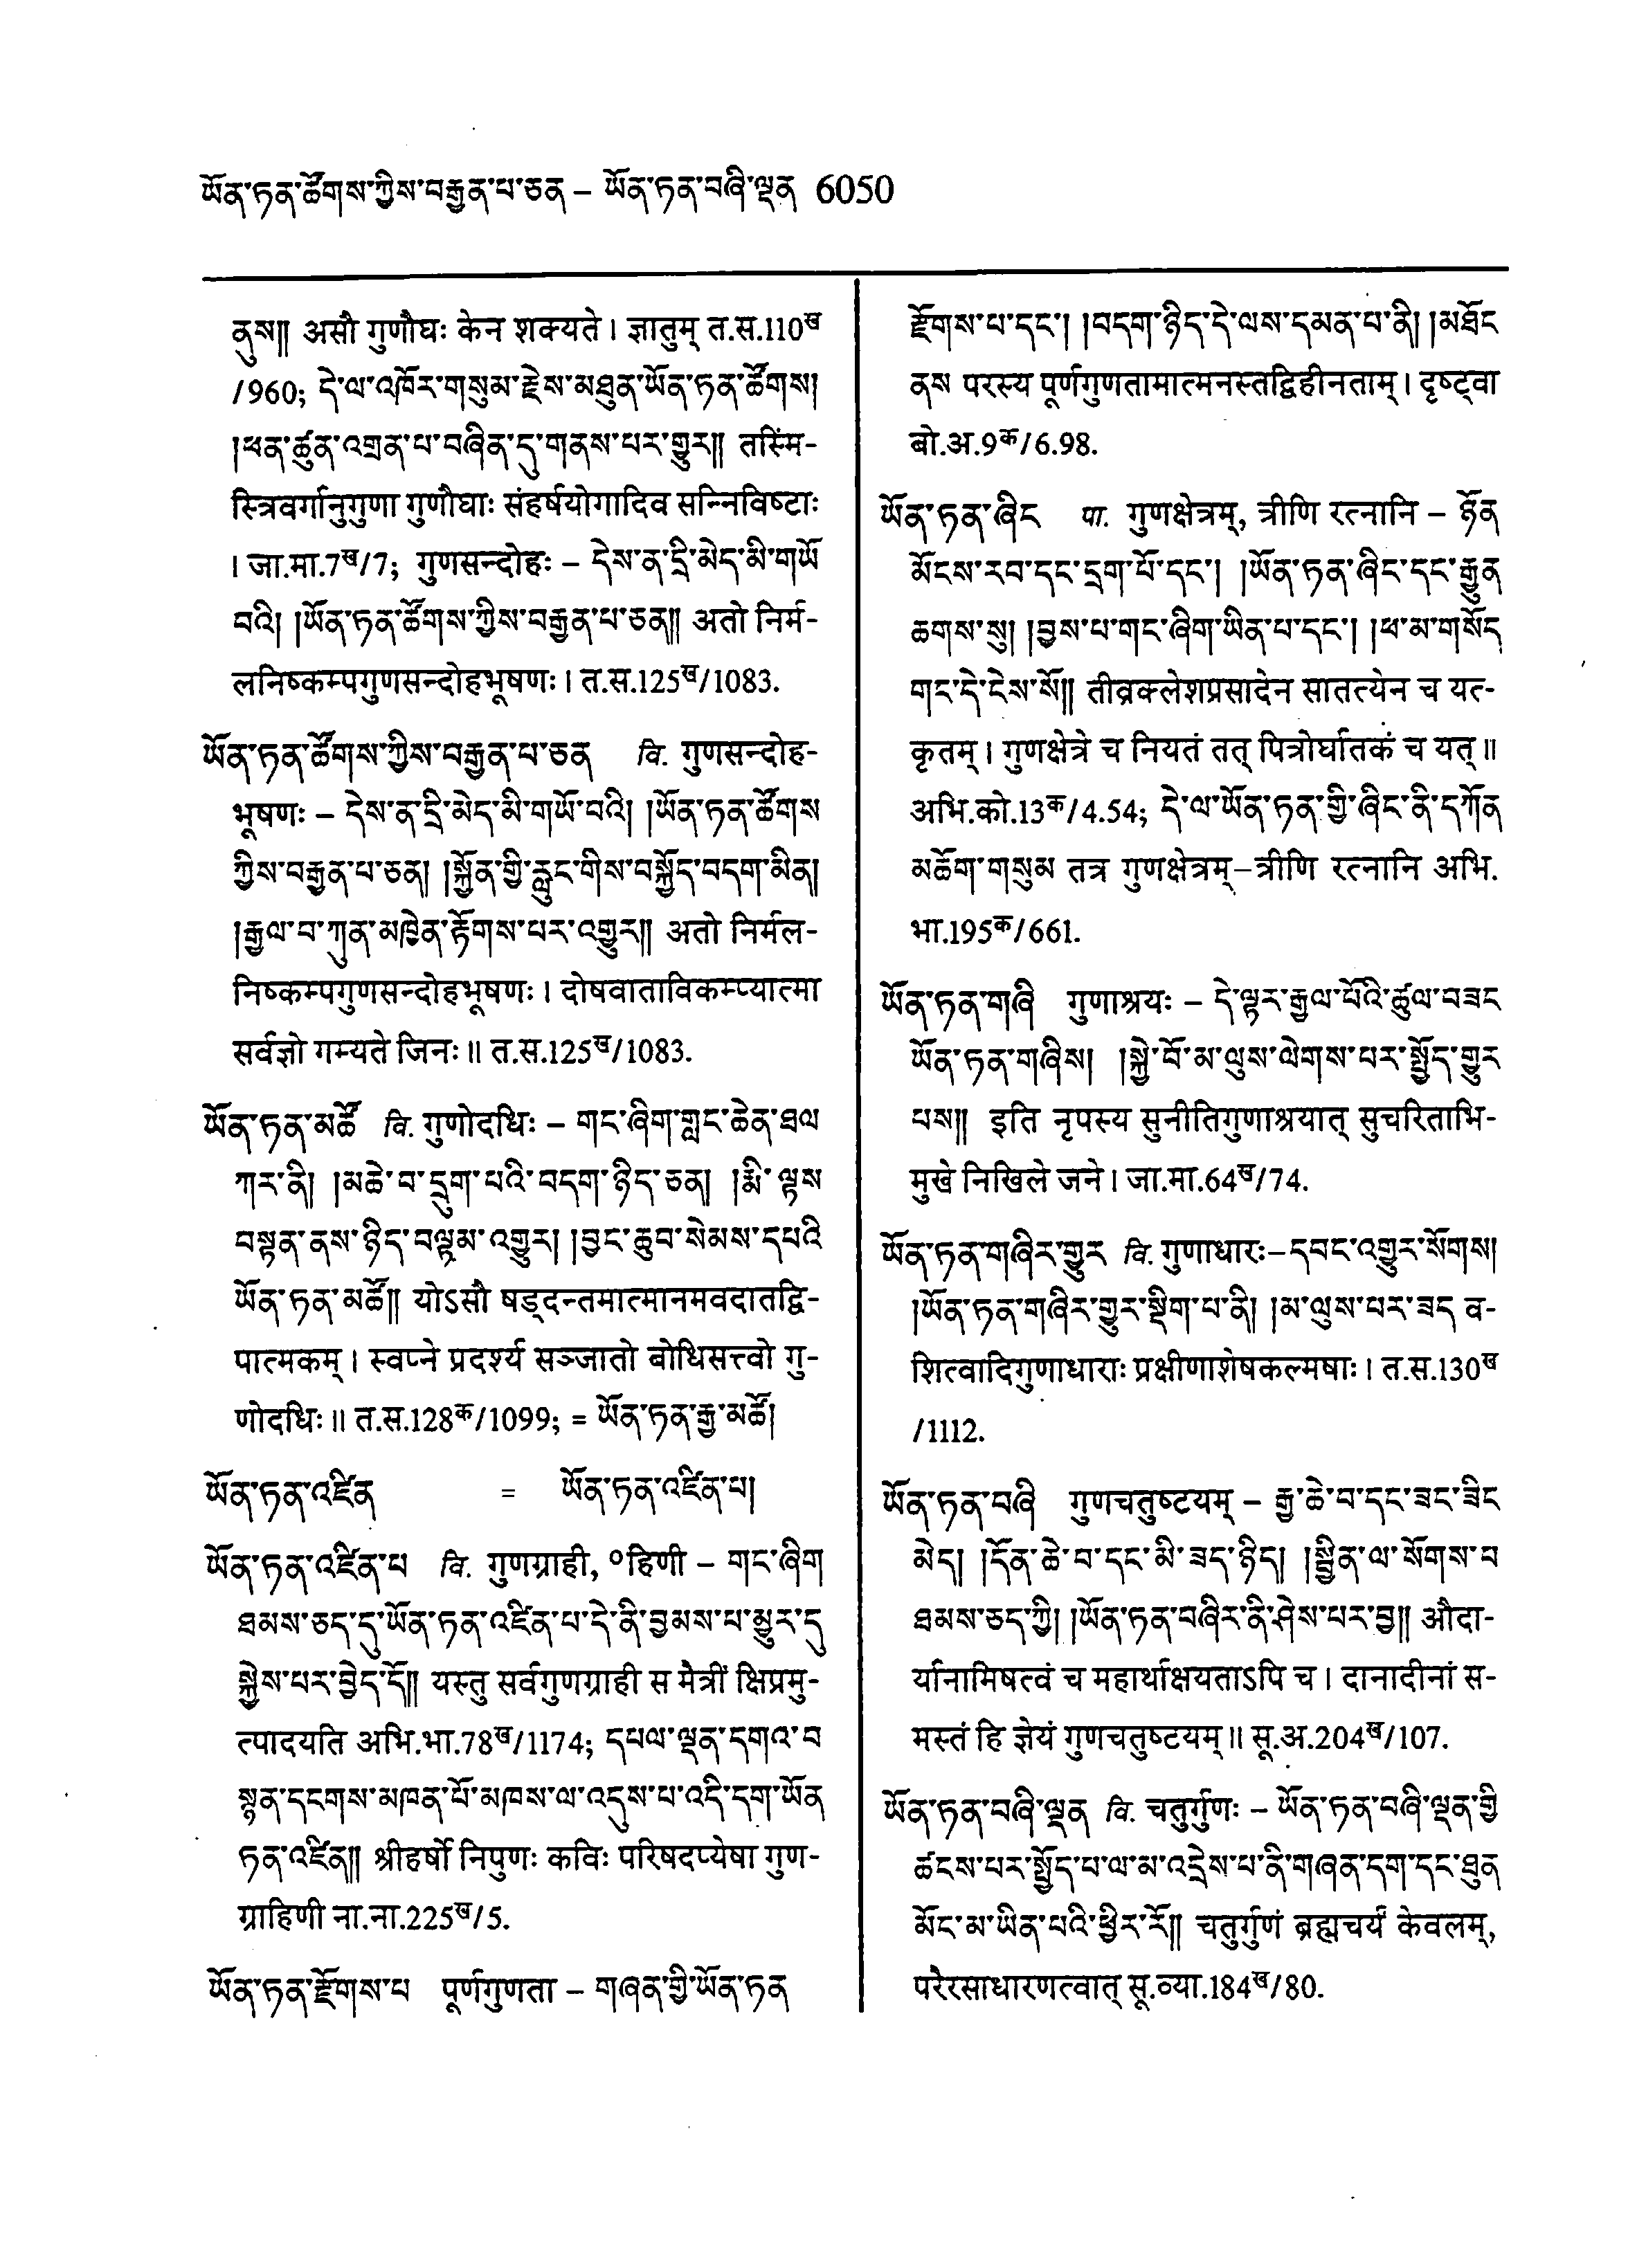 ཡོན་ཏན་ཚོགས་ཀྱིས་བརྒྱན་པ་ཅན – ཡོན་ཏན་བཞི་ལྡན 6050
ནུས།། असौ गुणौघः केन शक्यते । ज्ञातुम् त.स.110ख
/960; དེ་ལ་འཁོར་གསུམ་རྗེས་མཐུན་ཡོན་ཏན་ཚོགས།
།ཕན་ཚུན་འགྲན་པ་བཞིན་དུ་གནས་པར་གྱུར།། तस्मिं-
स्त्रिवर्गानुगुणा गुणौघाः संहर्षयोगादिव सन्निविष्टाः
। जा.मा.7ख/7; गुणसन्दोहः – དེས་ན་དྲི་མེད་མི་གཡོ
བའི། །ཡོན་ཏན་ཚོགས་ཀྱིས་བརྒྱན་པ་ཅན།། अतो निर्म-
लनिष्कम्पगुणसन्दोहभूषणः । त.स.125ख/1083.
ཡོན་ཏན་ཚོགས་ཀྱིས་བརྒྱན་པ་ཅན वि. गुणसन्दोह-
भूषणः – དེས་ན་དྲི་མེད་མི་གཡོ་བའི། །ཡོན་ཏན་ཚོགས
ཀྱིས་བརྒྱན་པ་ཅན། །སྐྱོན་གྱི་རླུང་གིས་བསྐྱོད་བདག་མིན།
།རྒྱལ་བ་ཀུན་མཁྱེན་རྟོགས་པར་འགྱུར།། अतो निर्मल-
निष्कम्पगुणसन्दोहभूषणः । दोषवाताविकम्प्यात्मा
सर्वज्ञो गम्यते जिनः ॥ त.स.125ख/1083.
ཡོན་ཏན་མཚོ वि. गुणोदधिः – གང་ཞིག་གླང་ཆེན་ཐལ
ཀར་ནི། །མཆེ་བ་དྲུག་པའི་བདག་ཉིད་ཅན། །རྨི་ལྟས
བསྟན་ནས་ཉིད་བལྟམ་འགྱུར། །བྱང་ཆུབ་སེམས་དཔའི
ཡོན་ཏན་མཚོ།། योऽसौ षड्दन्तमात्मानमवदातद्वि-
पात्मकम् । स्वप्ने प्रदर्श्य सञ्जातो बोधिसत्त्वो गु-
णोदधिः ॥ त.स.128क/1099; = ཡོན་ཏན་རྒྱ་མཚོ།
ཡོན་ཏན་འཛིན = ཡོན་ཏན་འཛིན་པ།
ཡོན་ཏན་འཛིན་པ वि. गुणग्राही, ॰हिणी – གང་ཞིག
ཐམས་ཅད་དུ་ཡོན་ཏན་འཛིན་པ་དེ་ནི་བྱམས་པ་མྱུར་དུ
སྐྱེས་པར་བྱེད་དོ།། यस्तु सर्वगुणग्राही स मैत्रीं क्षिप्रमु-
त्पादयति अभि.भा.78ख/1174; དཔལ་ལྡན་དགའ་བ
སྙན་དངགས་མཁན་པོ་མཁས་ལ་འདུས་པ་འདི་དག་ཡོན
ཏན་འཛིན།། श्रीहर्षो निपुणः कविः परिषदप्येषा गुण-
ग्राहिणी ना.ना.225ख/5.
ཡོན་ཏན་རྫོགས་པ पूर्णगुणता – གཞན་གྱི་ཡོན་ཏན
རྫོགས་པ་དང་། །བདག་ཉིད་དེ་ལས་དམན་པ་ནི། །མཐོང
ནས परस्य पूर्णगुणतामात्मनस्तद्विहीनताम् । दृष्ट्वा
बो.अ.9क/6.98.
ཡོན་ཏན་ཞིང पा. गुणक्षेत्रम्, त्रीणि रत्नानि – ཉོན
མོངས་རབ་དང་དྲག་པོ་དང་། །ཡོན་ཏན་ཞིང་དང་རྒྱུན
ཆགས་སུ། །བྱས་པ་གང་ཞིག་ཡིན་པ་དང་། །ཕ་མ་གསོད
གང་དེ་ངེས་སོ།། तीव्रक्लेशप्रसादेन सातत्येन च यत्-
कृतम् । गुणक्षेत्रे च नियतं तत् पित्रोर्घातकं च यत् ॥
अभि.को.13क/4.54; དེ་ལ་ཡོན་ཏན་གྱི་ཞིང་ནི་དཀོན
མཆོག་གསུམ तत्र गुणक्षेत्रम्–त्रीणि रत्नानि अभि.
भा.195क/661.
ཡོན་ཏན་གཞི गुणाश्रयः – དེ་ལྟར་རྒྱལ་པོའི་ཚུལ་བཟང
ཡོན་ཏན་གཞིས། །སྐྱེ་བོ་མ་ལུས་ལེགས་པར་སྤྱོད་གྱུར
པས།། इति नृपस्य सुनीतिगुणाश्रयात् सुचरिताभि-
मुखे निखिले जने । जा.मा.64ख/74.
ཡོན་ཏན་གཞིར་གྱུར वि. गुणाधारः–དབང་འགྱུར་སོགས།
།ཡོན་ཏན་གཞིར་གྱུར་སྡིག་པ་ནི། །མ་ལུས་པར་ཟད व-
शित्वादिगुणाधाराः प्रक्षीणाशेषकल्मषाः । त.स.130ख
/1112.
ཡོན་ཏན་བཞི गुणचतुष्टयम् – རྒྱ་ཆེ་བ་དང་ཟང་ཟིང
མེད། །དོན་ཆེ་བ་དང་མི་ཟད་ཉིད། །སྦྱིན་ལ་སོགས་བ
ཐམས་ཅད་ཀྱི། །ཡོན་ཏན་བཞིར་ནི་ཤེས་པར་བྱ།། औदा-
र्यानामिषत्वं च महार्थाक्षयताऽपि च । दानादीनां स-
मस्तं हि ज्ञेयं गुणचतुष्टयम् ॥ सू.अ.204ख/107.
ཡོན་ཏན་བཞི་ལྡན वि. चतुर्गुणः – ཡོན་ཏན་བཞི་ལྡན་གྱི
ཚངས་པར་སྤྱོད་པ་ལ་མ་འདྲེས་པ་ནི་གཞན་དག་དང་ཐུན
མོང་མ་ཡིན་པའི་ཕྱིར་རོ།། चतुर्गुणं ब्रह्मचर्यं केवलम्,
परैरसाधारणत्वात् सू.व्या.184ख/80.